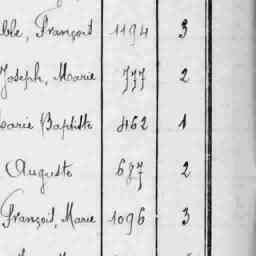 François 1194 3
Joseph, Marie 777 2
Marie Baptiste 462 1
Auguste 677 2
François, Marie 1096 3